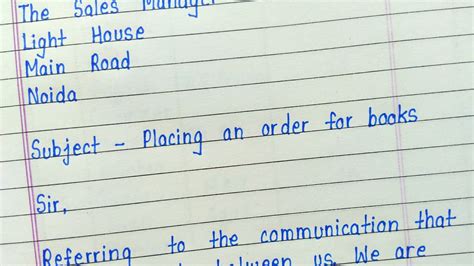 The Sales Manager
Light House
Main Road
Noida
Subject - Placing an order for books
Sir,
Referring to the communication that
between us. We are